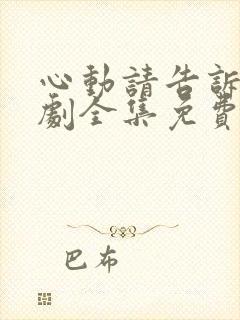 心動請告訴
劇全集免費
巴布